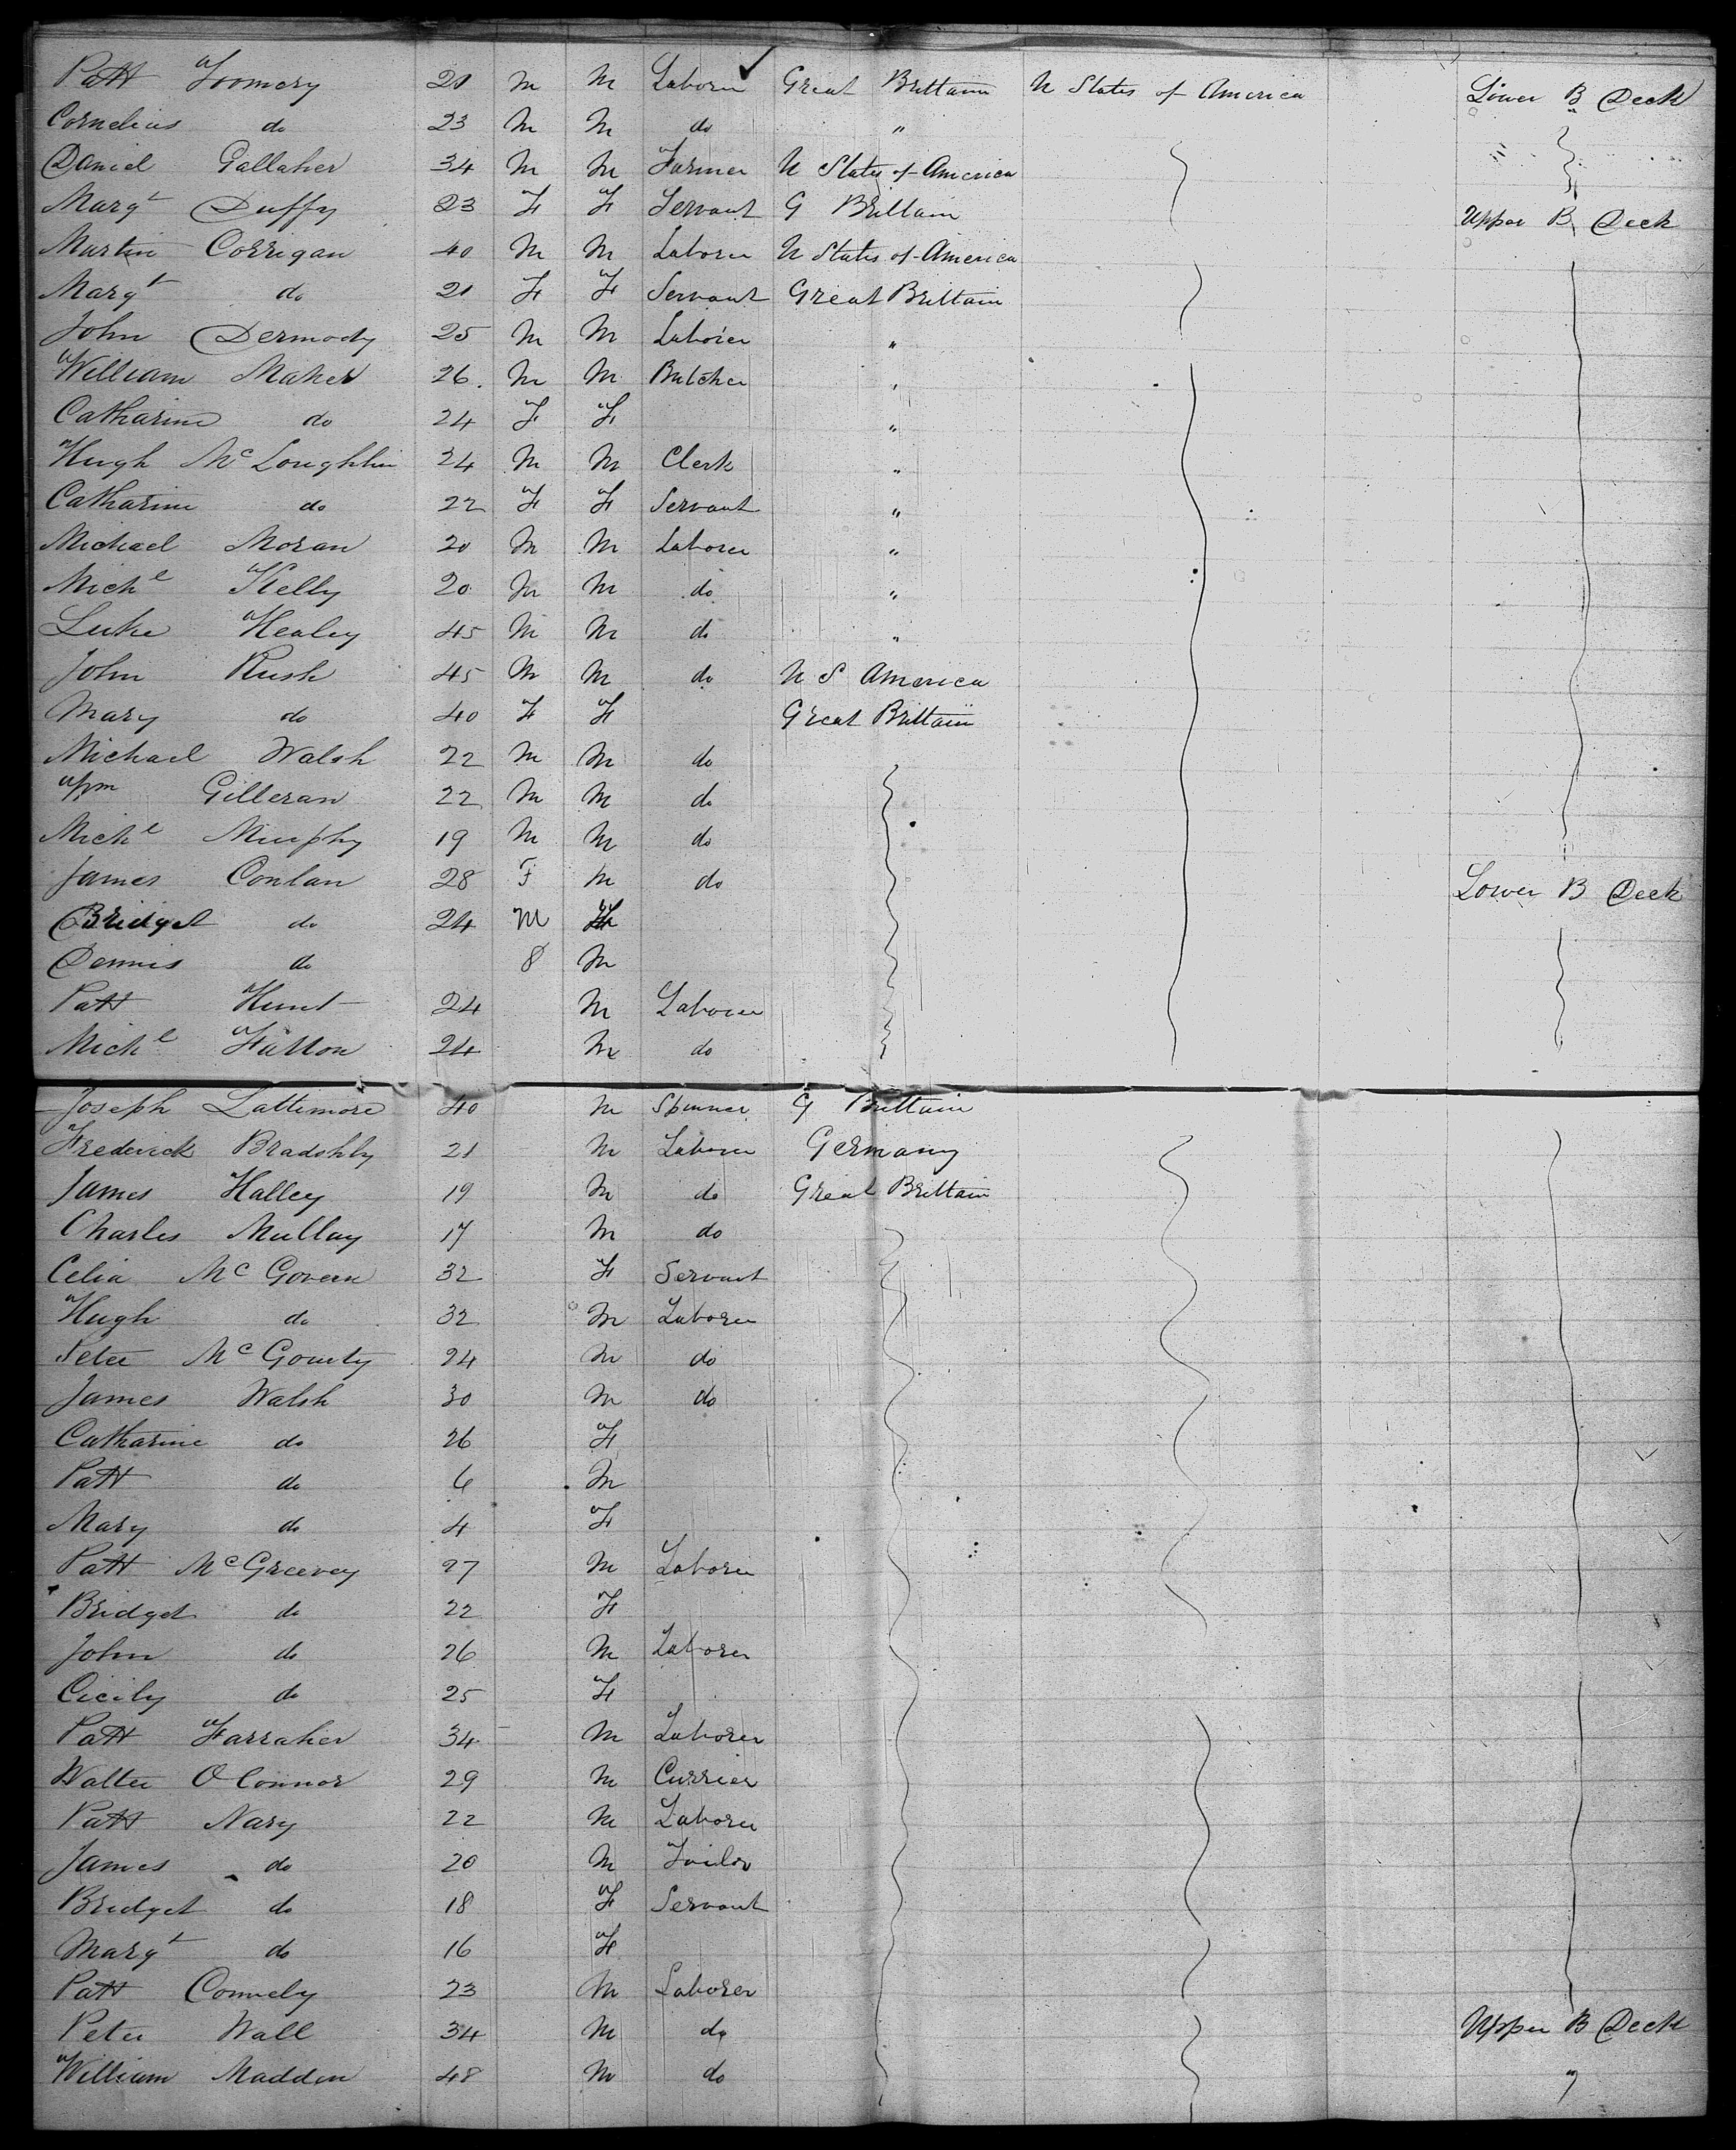 Patt Toomery 21 M M Laborer Great Brittain U States of America Lower B Deck
Cornelius do 23 M M do "
Daniel Gallaher 34 M M Farmer U States of America
Margt Duffy 23 F F Servant G Brittain Upper B Deck
Martin Corrigan 40 M M Laborer U States of America
Margt do 21 F F Servant Great Brittain
John Dermody 25 M M Laborer "
William Maher 26 M M Butcher "
Catharine do 24 F F "
Hugh Mc Loughlin 24 M M Clerk "
Catharine do 22 F F Servant "
Michael Moran 20 M M Laborer "
Michl Kelly 20 M M do "
Luke Healey 45 M M do "
John Rush 45 M M do U S America
Mary do 40 F F Great Brittain
Michael Walsh 22 M M do
Wm Gilleran 22 M M do
Michl Murphy 19 M M do
James Conlan 28 F M do Lower B Deck
Bridget do 24 M F
Dennis do 8 M
Patt Hunt 24 M Laborer
Michl Fallon 24 M do
Joseph Lattimore 40 M Spinner G Brittain
Frederick Bradshly 21 M Laborer Germany
James Halley 19 M do Great Brittain
Charles Mullay 17 M do
Celia Mc Govern 32 F Servant
Hugh do 32 M Laborer
Peter Mc Gourty 24 M do
James Walsh 30 M do
Catharine do 26 F
Patt do 6 M
Mary do 4 F
Patt Mc Greevey 27 M Laborer
Bridget do 22 F
John do 26 M Laborer
Cicily do 25 F
Patt Farraher 34 M Laborer
Walter O Connor 29 M Currier
Patt Nary 22 M Laborer
James do 20 M Tailor
Bridget do 18 F Servant
Margt do 16 F
Patt Connely 23 M Laborer
Peter Wall 34 M do Upper B Deck
William Madden 48 M do "